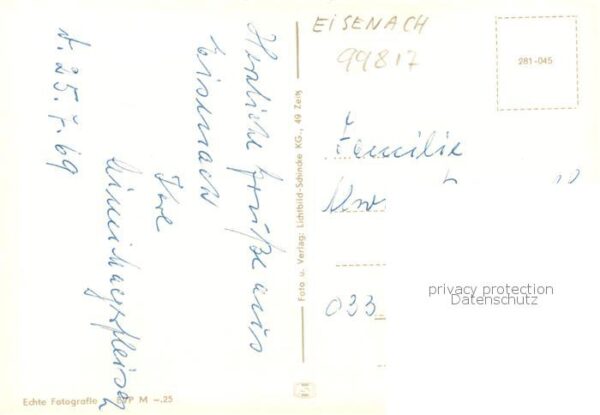 d. 25. 7. 69
Herzliche Grüße aus
Eisenach
Ihre
EISENACH
99817
281-045
Familie
033
privacy protection
Datenschutz
Foto u. Verlag: Lichtbild-Schincke KG., 49 Zeitz
Echte Fotografie P M -.25